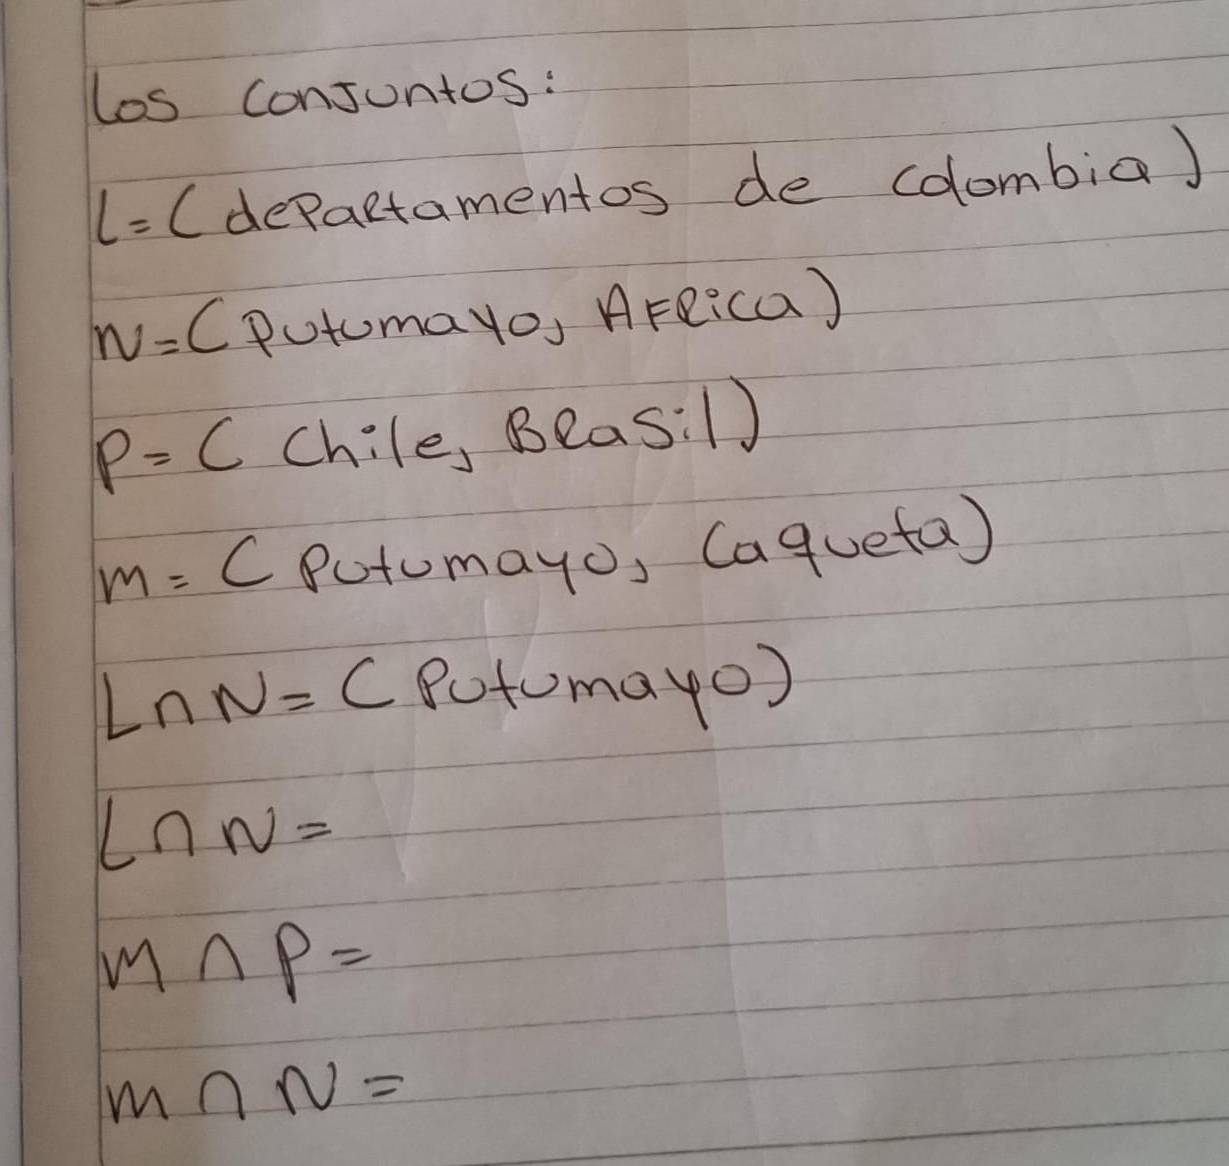 Los conjuntos:
L=(departamentos de colombia)
N=(putumayo, AFRica)
P=( Chile, BRasil)
m= ( Putumayo, Caqueta)
L∩N=( Putumayo)
L∩N=
m∩P=
m∩N=